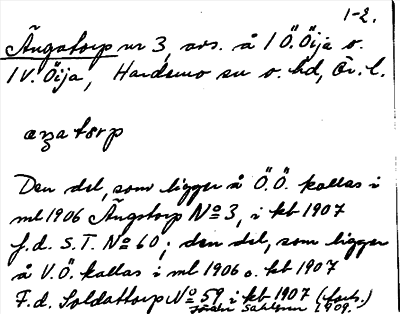 1-2.
Ängatorp nr 3, avs. å 1 Ö. Öija o.
1 V. Öija, Hardemo sn o. hd, Ör. l.
æŋatɔrp
Den del, som ligger å Ö. Ö. kallas i
ml 1906 Ängstorp No 3, i kb 1907
f.d. S. T. No 60; den del, som ligger
å V. Ö. kallas i ml 1906 o. kb 1907
F.d. Soldattorp No 59 i kb 1907 (forts.)
Sahlgren 1909.